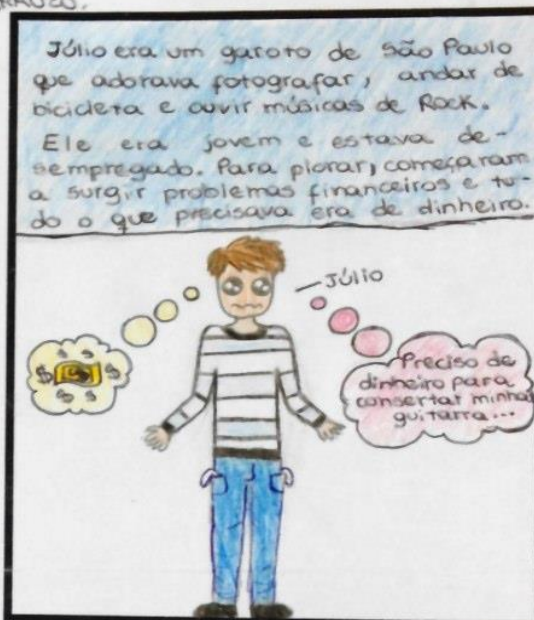 Júlio era um garoto de São Paulo
que adorava fotografar, andar de
bicicleta e ouvir músicas de Rock.
Ele era jovem e estava de-
sempregado. Para piorar, começaram
a surgir problemas financeiros e tu-
do o que precisava era de dinheiro.
Júlio
$ $ $ $ $ $
Preciso de
dinheiro para
consertar minha
guitarra...